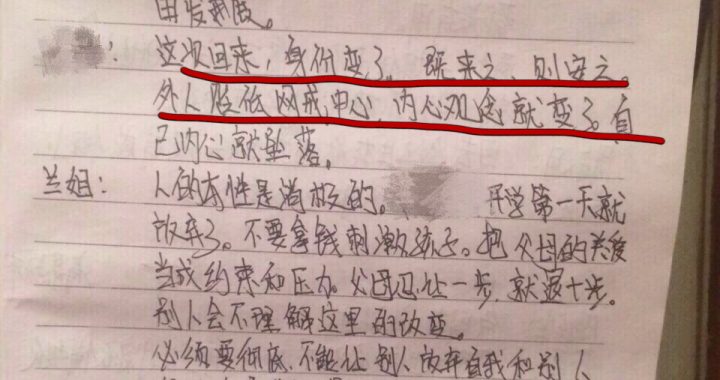 由发我版。
：这次回来，身份变了。既来之，则安之。
外人贬低网戒中心，内心观念就变了。自
己内心就坠落。
兰姐：人的本性是消极的。 开学第一天就
放弃了。不要拿钱刺激孩子。把父母的关爱
当成约束和压力。父母让一步，就退十步。
别人会不理解这里的改变。
必须要彻底，不能让别人放弃自我和别人